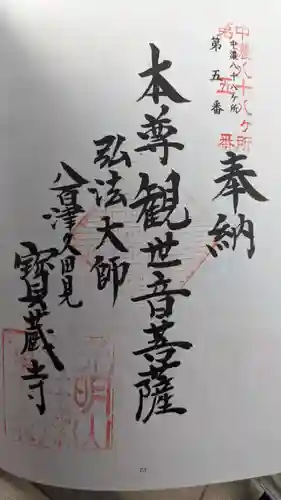 中濃八十八ヶ所
第五番
中濃八十八ヶ所
第五番
奉納
本尊観世音菩薩
弘法大師
八百津久田見
寳蔵寺